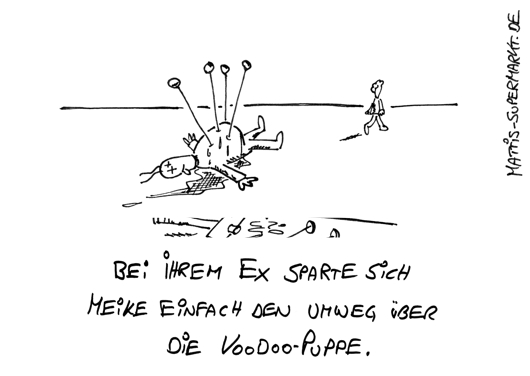 MATTIS-SUPERMARKT.DE
BEI IHREM EX SPARTE SICH
MEIKE EINFACH DEN UMWEG ÜBER
DIE VOODOO-PUPPE.